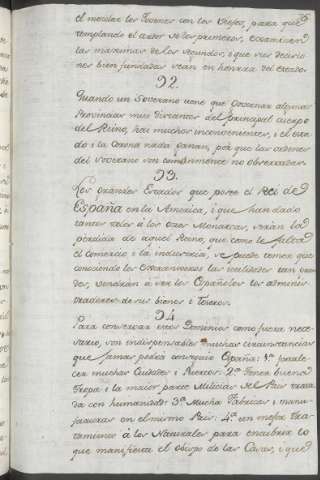 el mezclar los Jovenes con los Viejos, para que
templando el ardor de los primeros, examinen
las maximas de los segundos, i que sus decisio
nes bien fundadas sean en honrra del Estado.
92.
Quando un Soverano tiene que Governar algunas
Provincias mui distantes del principal cuerpo
del Reino, hai muchos inconvenientes, i el esta
do i la Corona nada ganan, por que las ordenes
del soverano son comunmente no observadas.
93.
Los grandes Estados que posee el Rei de
España en la America, i que han dado
tantos zelos à los otros Monarcas, serán la
pérdida de aquel Reino, que como le falta
el comercio i la industria, se puede temer que
conociendo los estrangeros las utilidades tan gran
des, vendrán à ser los Españoles los adminis
tradores de sus bienes i Tesoros.
94
Para conservar estos Dominios como fuera nece
sario, son indispensables muchas circunstancias
que jamas podrá conseguir España: 1.ª fortale
cer muchas Ciudades i Puertos: 2.ª Tener buena
Tropa i la maior parte Milicias del Pais trata
da con humanidad: 3.ª Mucha Fabricas i manu
facturas en el mismo Pais: 4.ª un mejor tra
tamiento à los Naturales para encubrir lo
que manifiesta el obispo de las Casas, i que